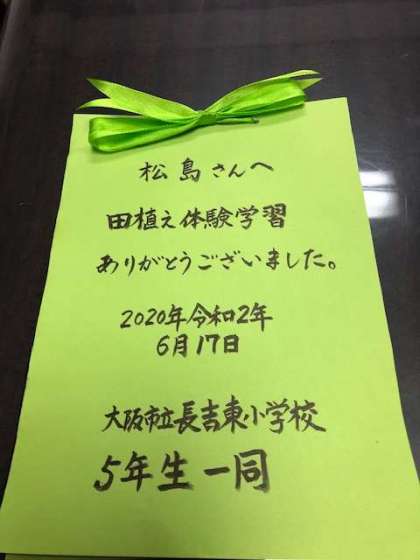 松島さんへ
田植え体験学習
ありがとうございました。
2020年令和2年
6月17日
大阪市立長吉東小学校
5年生一同